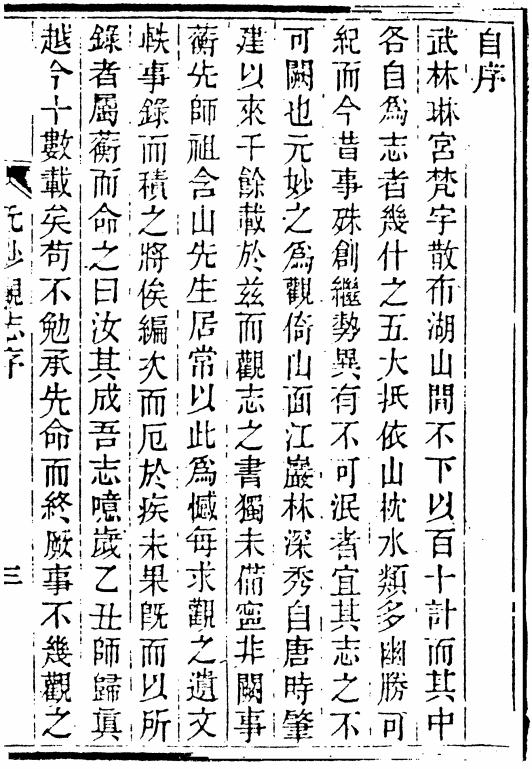 自序
武林琳宮梵宇散布湖山間不下以百十計而其中
各自為志者幾什之五大抵依山枕水類多幽勝可
紀而今昔事殊創繼勢異有不可泯者宜其志之不
可闕也元妙之為觀倚山面江巖林深秀自唐時肇
建以來千餘載於茲而觀志之書獨未備寧非闕事
蘅先師祖含山先生居常以此為憾每求觀之遺文
軼事錄而積之將俟編次而厄於疾未果既而以所
錄者屬蘅而命之曰汝其成吾志噫歲乙丑師歸眞
越今十數載矣苟不勉承先命而終厥事不幾觀之
元妙觀志序
三